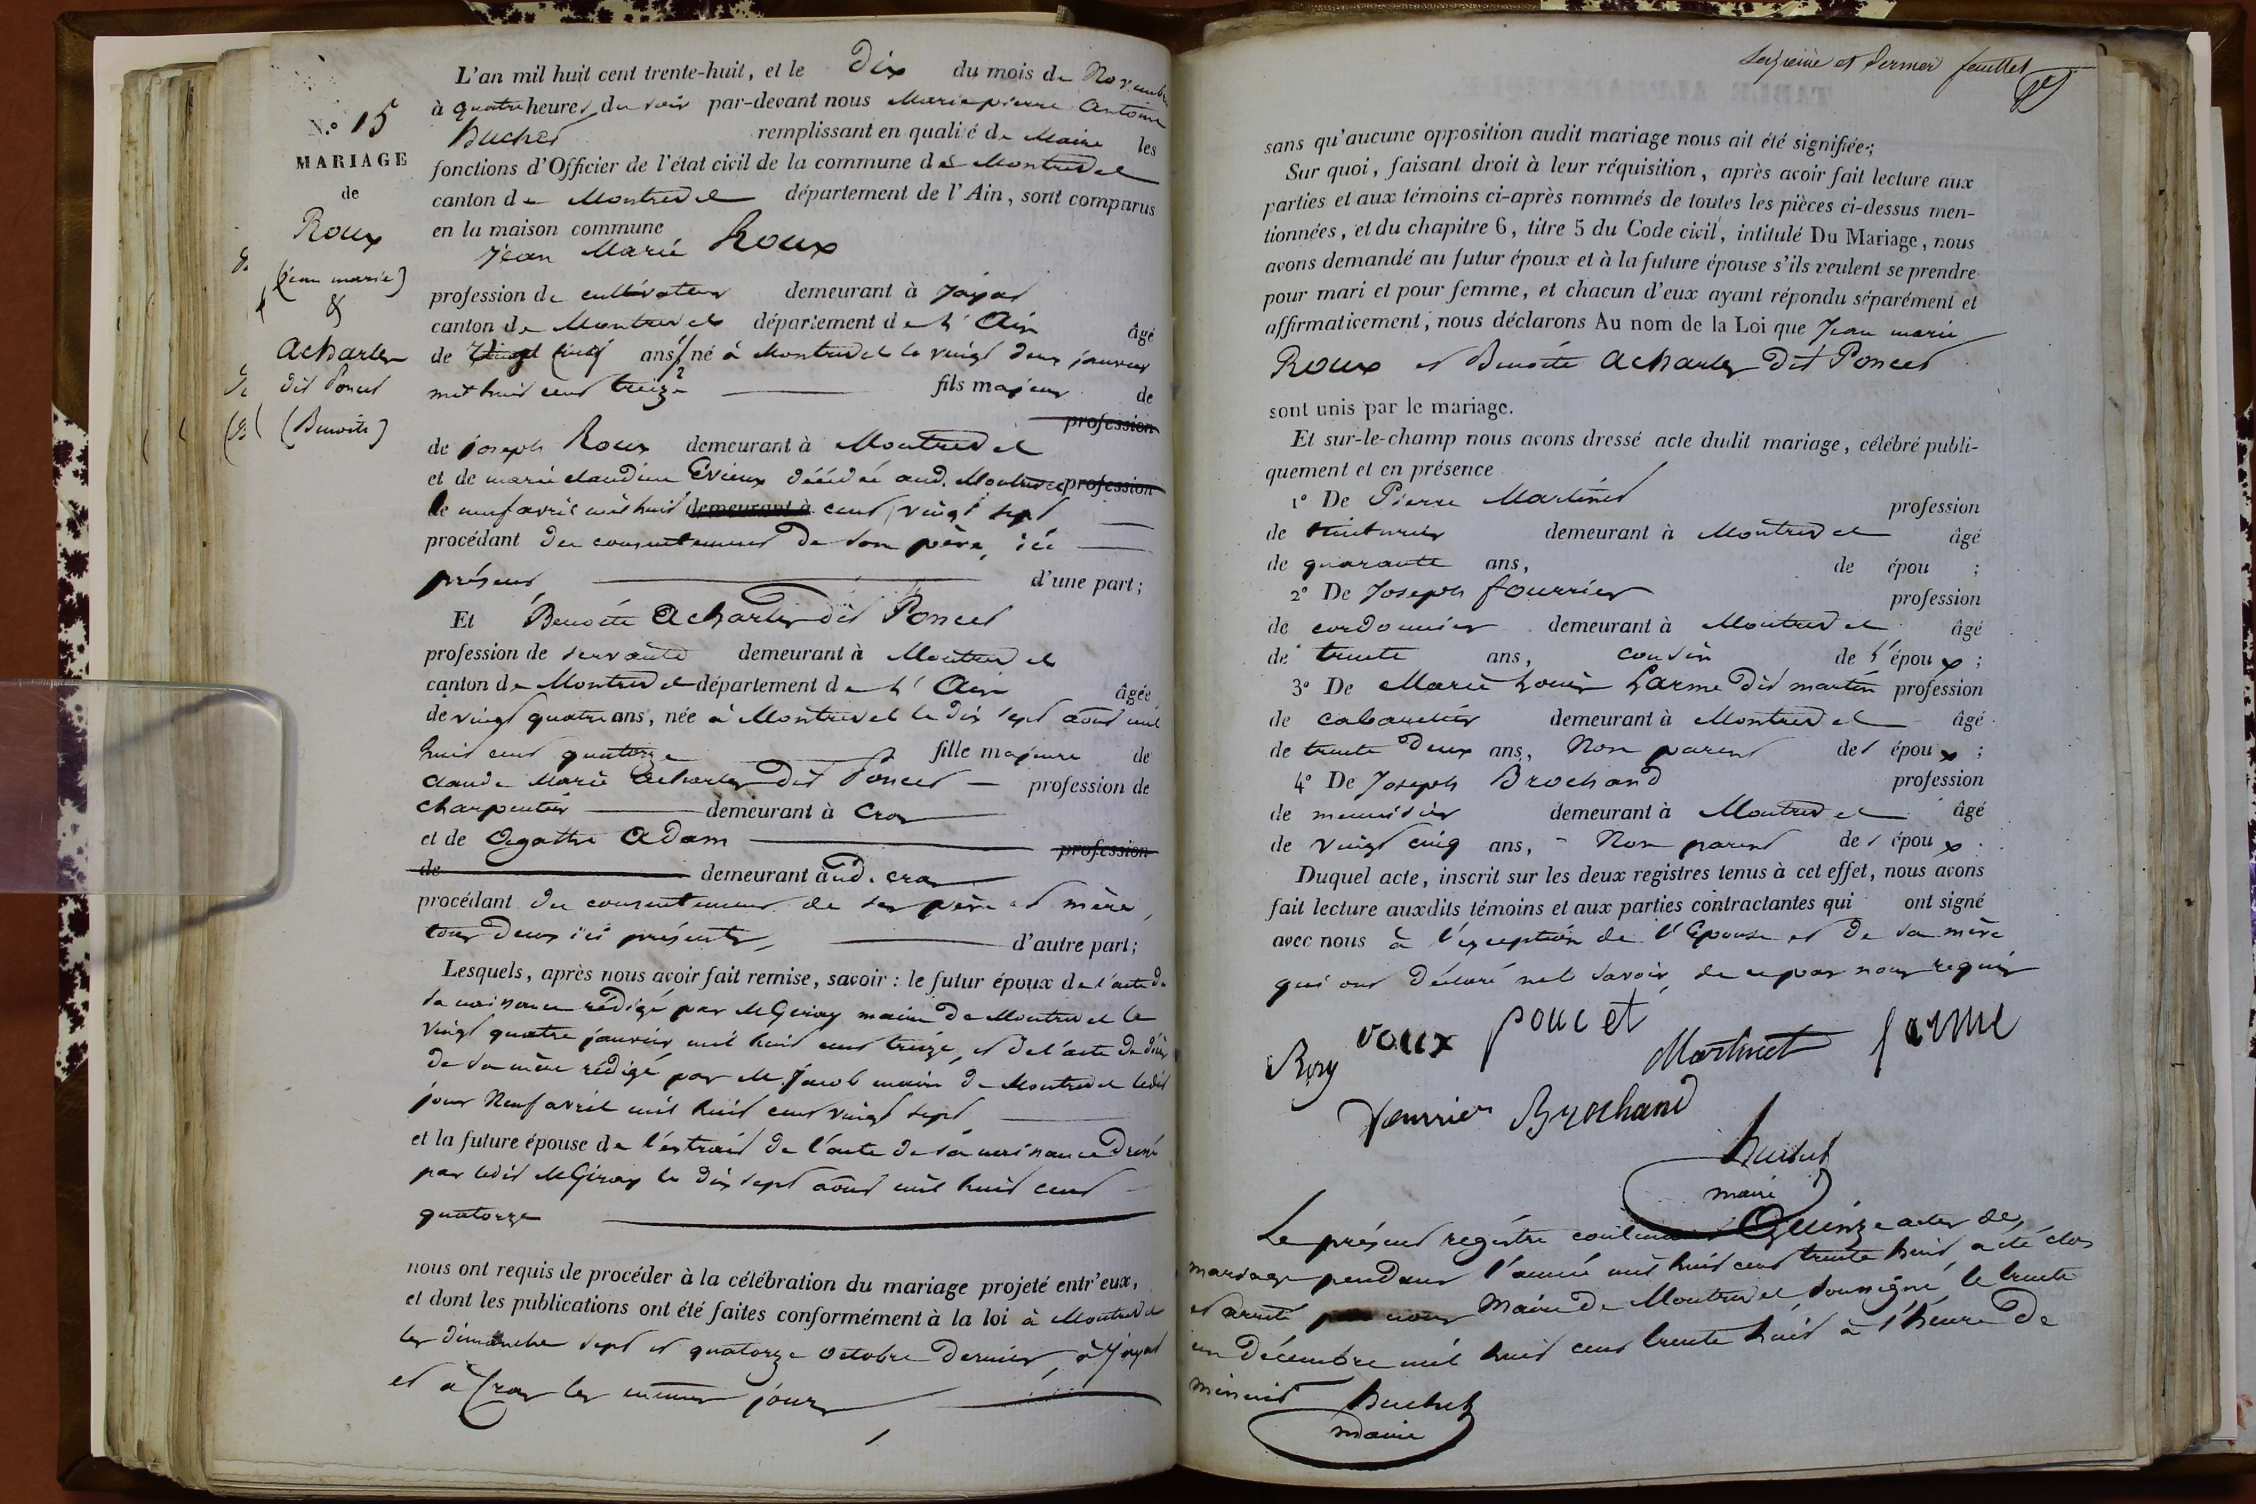 L'an mil huit cent trente-huit, et le Dix du mois de Novembre
à quatre heures du soir par-devant nous Marie pierre Antoine
Buchet remplissant en qualité de Maire les
N.º 15
MARIAGE
de
Roux
(jean marie)
&
Acharler
dit Poncet
(Benoite)
fonctions d'Officier de l'état civil de la commune de Montrevel
canton de Montrevel département de l'Ain, sont comparus
en la maison commune
Jean Marie Roux
profession de cultivateur demeurant à Jayat
canton de Montrevel département de l'Ain âgé
de Vingt cinq ans, né à Montrevel le vingt deux janvier
mil huit cent treize fils majeur de
profession
de joseph Roux demeurant à Montrevel
et de marie claudine Evieux décédée aud. Montrevel profession
le neuf avril mil huit demeurant à cent vingt sept
procédant du consentement de son père, ici
présent, d'une part;
Et Benoite Acharler dit Poncet
profession de servante demeurant à Montrevel
canton de Montrevel département de l'Ain âgée
de vingt quatre ans, née à Montrevel le dix sept août mil
huit cent quatorze fille majeure de
claude Marie Acharler dit Poncet profession de
charpentier demeurant à Cras
et de Agathe Adam profession
de demeurant aud. cras
procédant du consentement de ses père et mère,
tous deux ici présents, d'autre part;
Lesquels, après nous avoir fait remise, savoir : le futur époux de l'acte de
sa naissance rédigé par M Giroy maire de Montrevel le
vingt quatre janvier mil huit cent treize, et de l'acte de décès
de sa mère rédigé par M. Jacob maire de Montrevel ledit
jour Neuf avril mil huit cent vingt sept
et la future épouse de l'extrait de l'acte de sa naissance dressé
par ledit M Giroy le dix sept août mil huit cent
quatorze
nous ont requis de procéder à la célébration du mariage projeté entr'eux,
et dont les publications ont été faites conformément à la loi à Montrevel
les dimanche sept et quatorze octobre dernier, à Jayat
et à Cras les mêmes jours
Seizième et dernier feuillet
sans qu'aucune opposition audit mariage nous ait été signifiée;
Sur quoi, faisant droit à leur réquisition, après avoir fait lecture aux
parties et aux témoins ci-après nommés de toutes les pièces ci-dessus men-
tionnées, et du chapitre 6, titre 5 du Code civil, intitulé Du Mariage, nous
avons demandé au futur époux et à la future épouse s'ils veulent se prendre
pour mari et pour femme, et chacun d'eux ayant répondu séparément et
affirmativement, nous déclarons Au nom de la Loi que Jean marie
Roux et Benoite Acharler dit Poncet
sont unis par le mariage.
Et sur-le-champ nous avons dressé acte dudit mariage, célébré publi-
quement et en présence
1º De Pierre Martinet profession
de teinturier demeurant à Montrevel âgé
de quarante ans, de épou ;
2º De Joseph fourrier profession
de cordonnier demeurant à Montrevel âgé
de trente ans, cousin de l'époux ;
3º De Marie Louis Larme dit martin profession
de cabaretier demeurant à Montrevel âgé
de trente deux ans, Non parent des époux ;
4º De Joseph Brochand profession
de menuisier demeurant à Montrevel âgé
de vingt cinq ans, Non parent des époux.
Duquel acte, inscrit sur les deux registres tenus à cet effet, nous avons
fait lecture auxdits témoins et aux parties contractantes qui ont signé
avec nous à l'exception de l'Epouse et de sa mère
qui ont déclaré ne le savoir, de ce par nous requis
Roux poncet Martinet larme
Roux
fourrier Brochand
Buchet
maire
Le présent registre contenant Quinze actes de
mariage pendant l'année mil huit cent trente huit a été clos
et arrêté par nous Maire de Montrevel soussigné, le trente
un décembre mil huit cent trente huit à l'heure de
minuit Buchet
maire